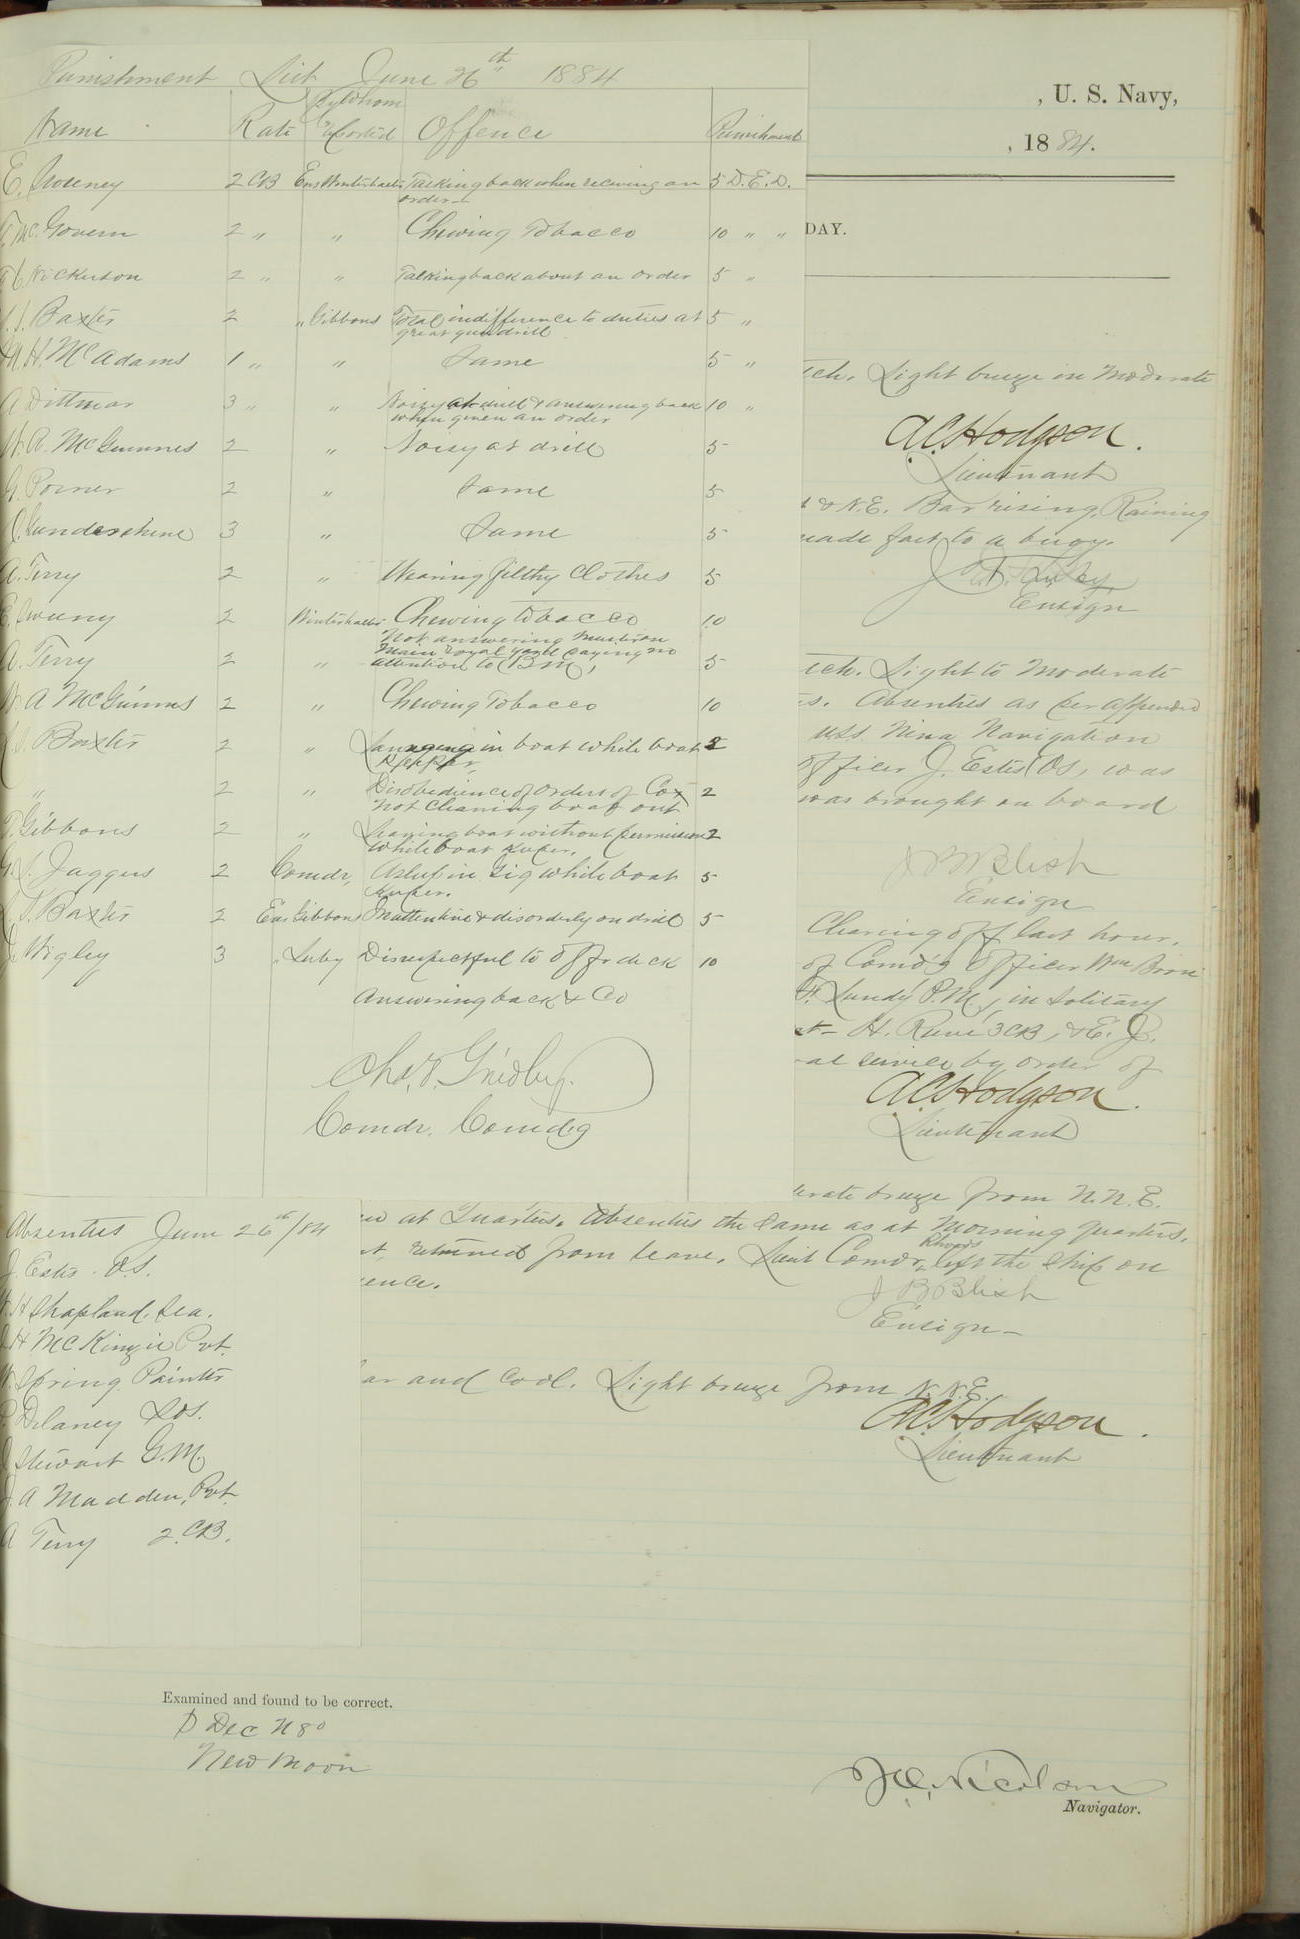 Punishment List June 26th 1884
Name Rate By Whom Reported Offence Punishment
E. 2 CB Ens Winterhalter Talking back when receiving an order 5 D. E. D.
McGovern 2 " " Chewing Tobacco 10 " "
Nickerson 2 " " Talking back about an order 5 "
Baxter 2 " Gibbons Total indifference to duties at great gun drill 5 "
H. McAdams 1 " " Same 5 "
A Dittmar 3 " " Noisy at drill & answering back when given an order 10 "
W. A. McGuinnes 2 " Noisy at drill 5
G. Porner 2 " Same 5
Gundershine 3 " Same 5
A. Terry 2 " Wearing filthy Clothes 5
E. 2 Winterhalter Chewing tobacco 10
A. Terry 2 " Not answering when on Main royal yard paying no attention to (BM) 5
W. A McGuinnes 2 " Chewing Tobacco 10
Baxter 2 " in boat while boat keeper 2
" 2 " Disobedience of orders of Cox not cleaning boat out 2
Gibbons 2 " Leaving boat without permission while boat keeper. 2
Jaggers 2 Comdr, Asleep in Gig while boat keeper. 5
Baxter 2 Ens Gibbons Inattentive & disorderly on drill 5
Wigley 3 " Luby Disrespectful to off of deck 10
Answering back & Co
Chas. V. Gridley.
Comdr. Comd'g
Absentees June 26th/84
J. Estes O.S.
W. H Shapland. Sea.
H McKinzie Pvt.
W. Spring Painter
Delaney Lds.
Stewart G.M.
J. A Madden, Pvt.
A Terry 2. CB.
, U. S. Navy,
, 1884.
DAY.
tch. Light breeze in moderate
A.C. Hodgson.
Lieutenant
& N.E. Bar rising, Raining
made fast to a buoy.
Ensign
tch. Light to moderate
Absentees as per appended
U.S.S. Nina Navigation
officer J. Estes (OS) was
was brought on board
J B Blish
Ensign
Clearing off last hour.
of Comd'g Officer Wm
Lundy P.M., in solitary
H. 3CB, & E. J.
service by order of
A.C. Hodgson.
Lieutenant
erate breeze from N.N.E.
at Quarters. Absentees the same as at Morning quarters.
returned from leave. Lieut Comdr. Rhoads left the ship on
ence.
J B Blish
Ensign
ar and cool. Light breeze from N.N.E.
A.C. Hodgson.
Lieutenant
Examined and found to be correct.
Dec N 8°
New Moon
Nicolson
Navigator.